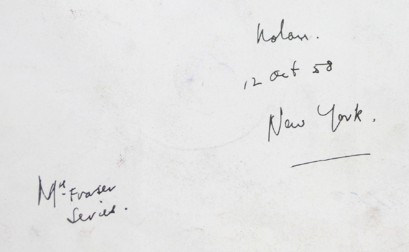 Nolan.
12 Oct 58
New York.
Mrs Fraser
Series.